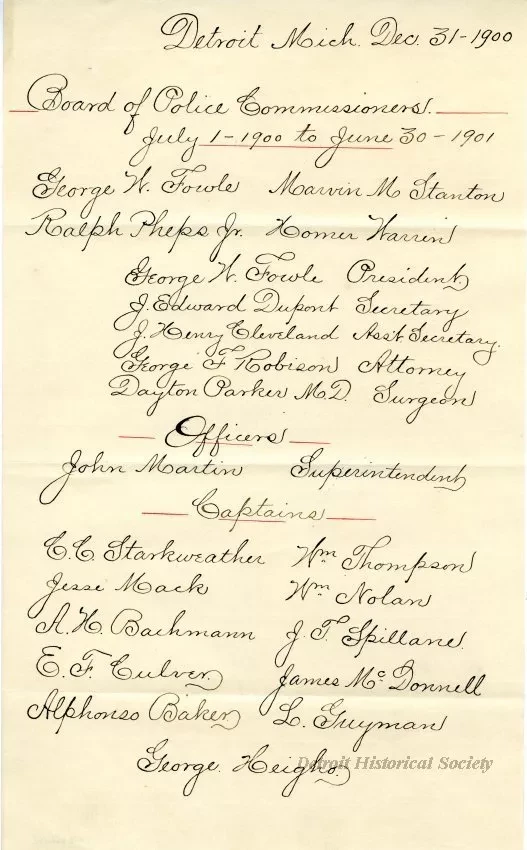 Detroit Mich. Dec. 31-1900
Board of Police Commissioners.
July 1-1900 to June 30-1901
George W. Fowle Marvin M Stanton
Ralph Pheps Jr. Homer Warren
George W. Fowle President
J. Edward Dupont Secretary
J. Henry Cleveland Ass't Secretary.
George F. Robison Attorney
Dayton Parker M.D. Surgeon
Officers
John Martin Superintendent
Captains
C.C. Starkweather Wm Thompson
Jesse Mack Wm Nolan
A. H. Bachmann J. T. Spillane.
E. F. Culver. James Mc Donnell
Alphonso Baker L. Guyman
George Heigho.
Detroit Historical Society